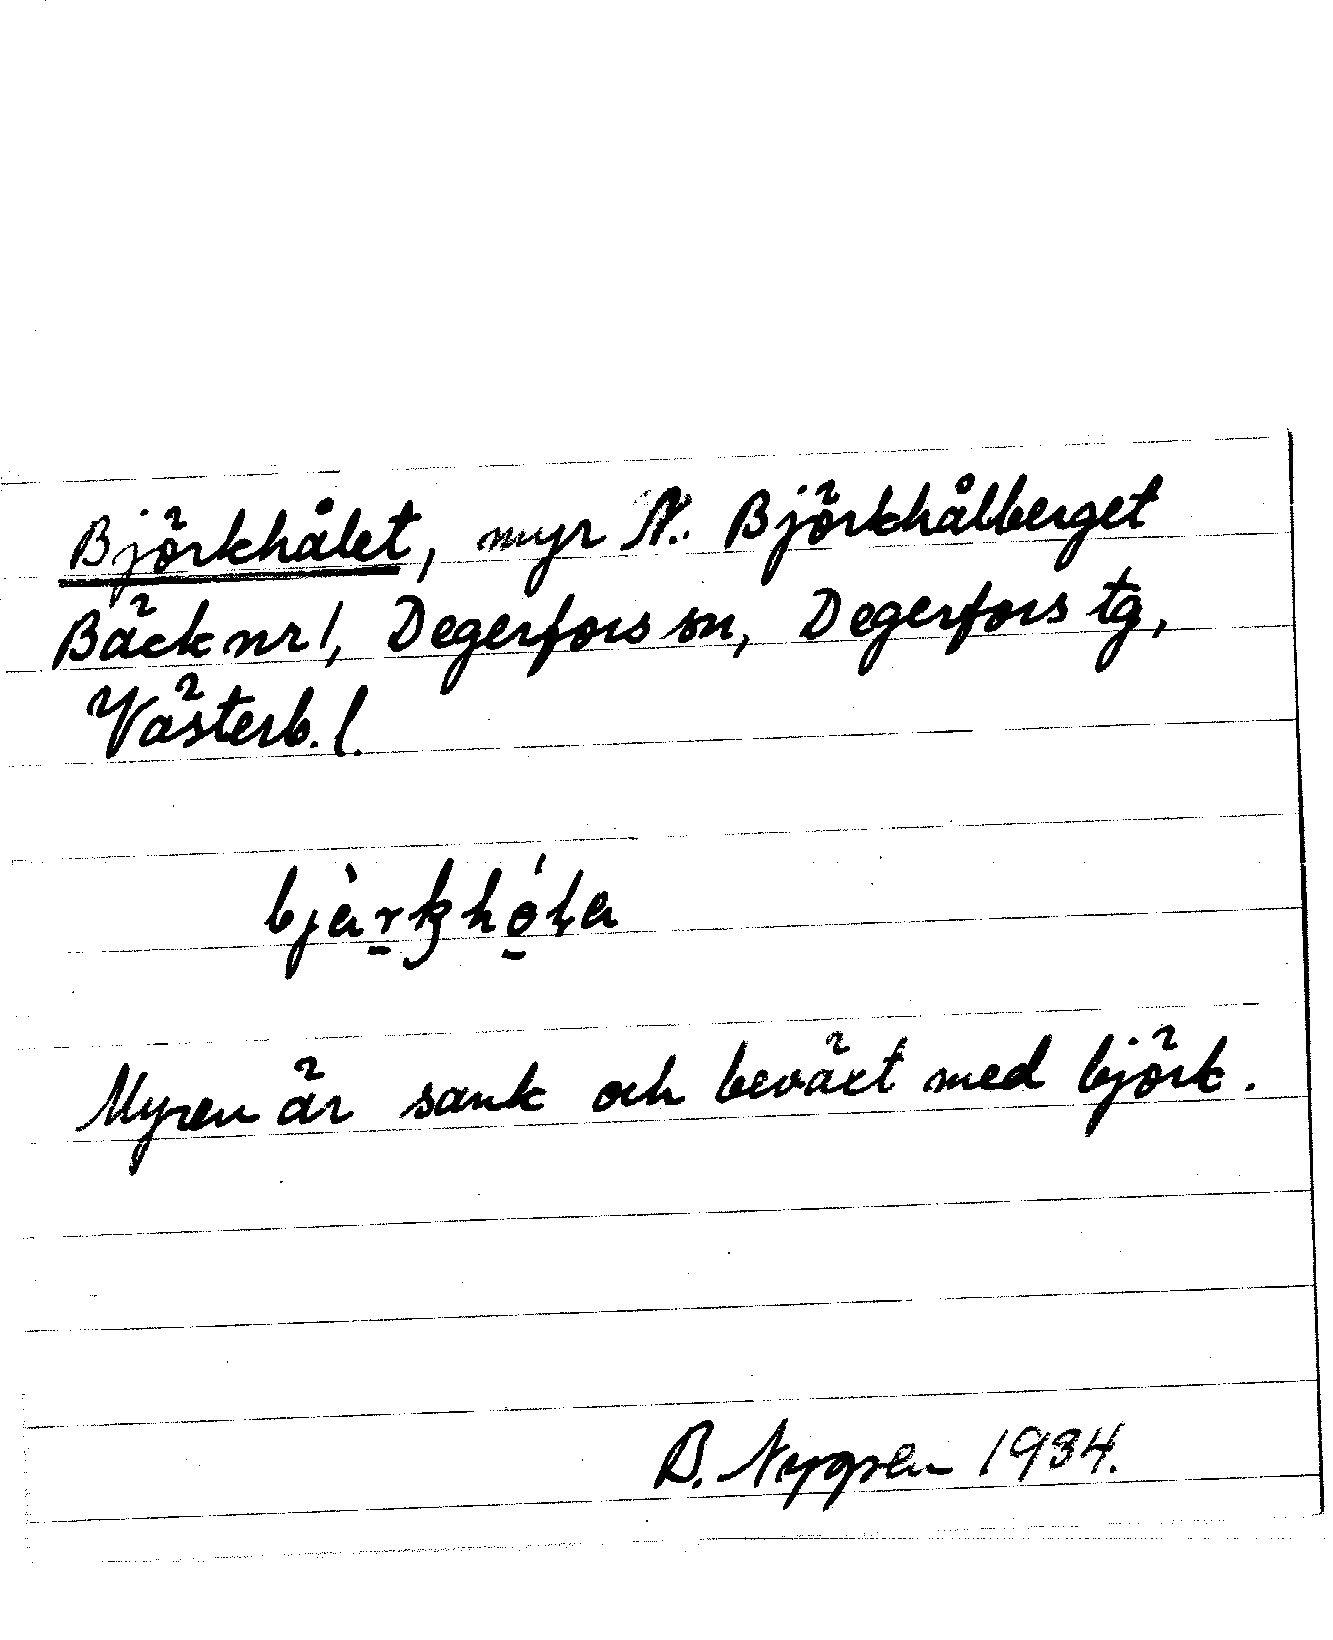 Björkhålet, myr N. Björkhålberget
Bäck nr 1, Degerfors sn, Degerfors tg,
Västerb. l.
Myren är sank och beväxt med björk.
B. Nygren 1934.